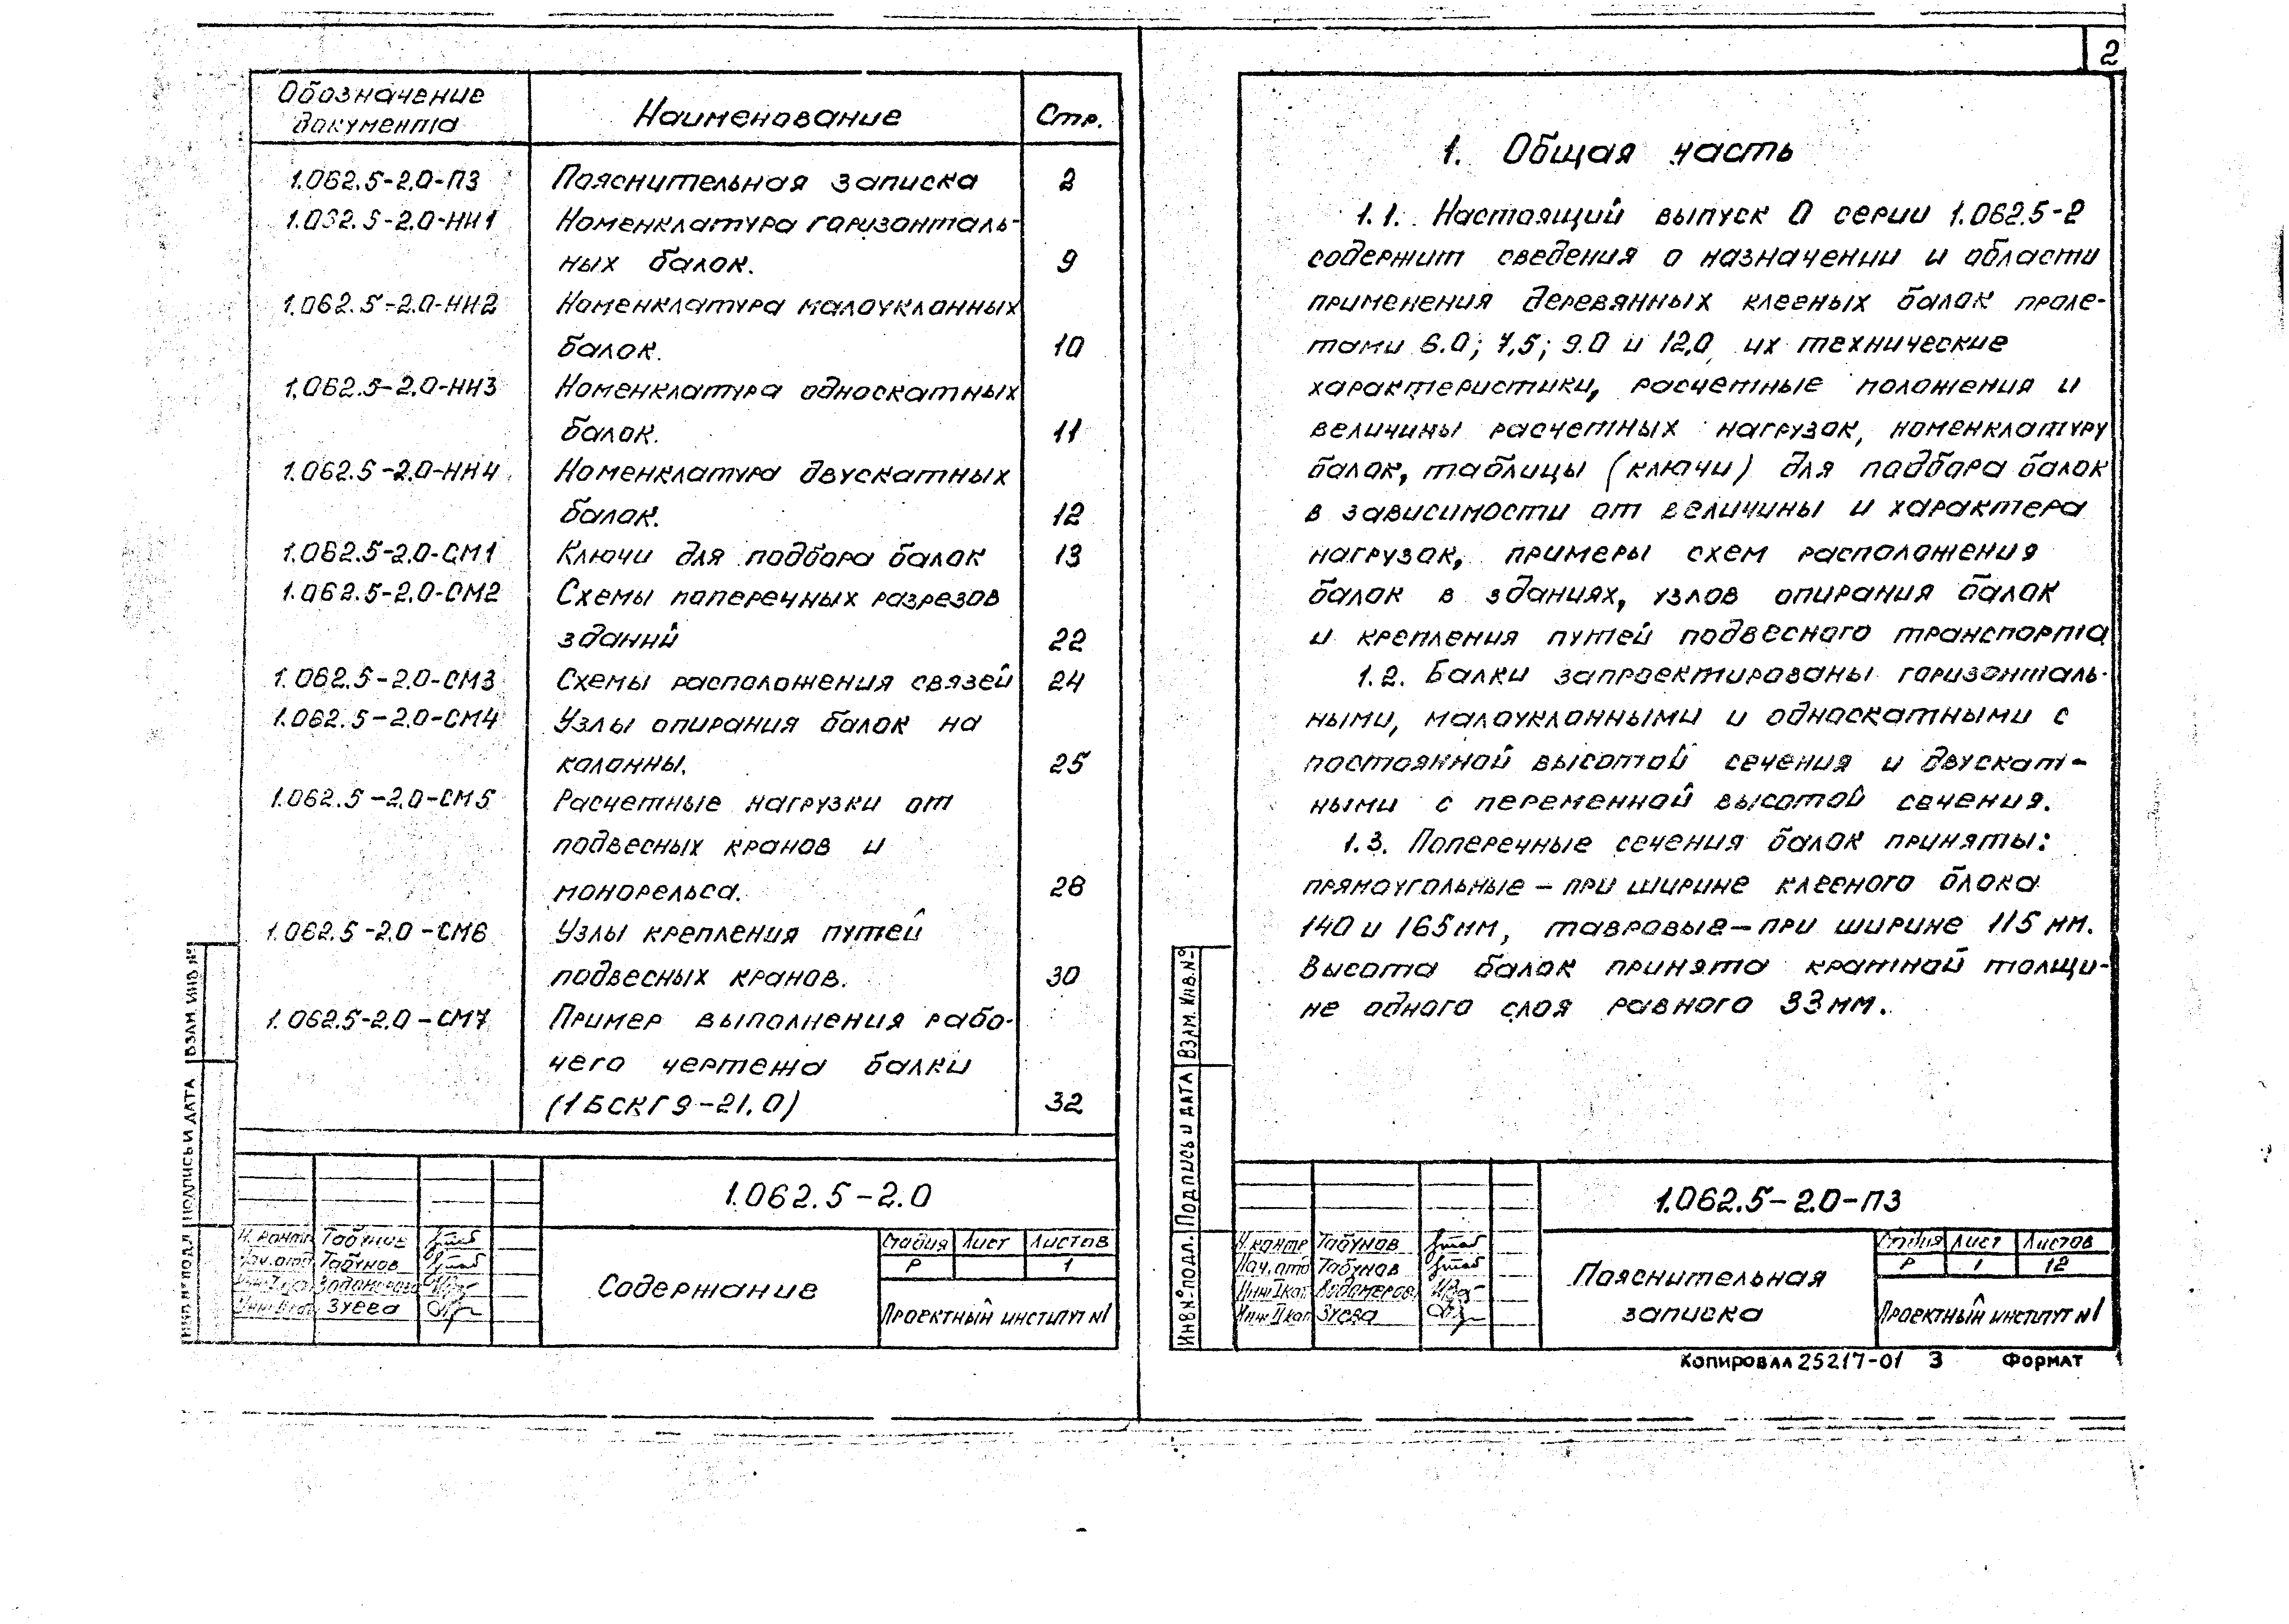 Обозначение документа Наименование Стр.
1.062.5-2.0-ПЗ Пояснительная записка 2
1.062.5-2.0-НИ1 Номенклатура горизонталь-
ных балок. 9
1.062.5-2.0-НИ2 Номенклатура малоуклонных
балок. 10
1.062.5-2.0-НИ3 Номенклатура односкатных
балок. 11
1.062.5-2.0-НИ4 Номенклатура двускатных
балок. 12
1.062.5-2.0-СМ1 Ключи для подбора балок 13
1.062.5-2.0-СМ2 Схемы поперечных разрезов
зданий 22
1.062.5-2.0-СМ3 Схемы расположения связей 24
1.062.5-2.0-СМ4 Узлы опирания балок на
колонны. 25
1.062.5-2.0-СМ5 Расчетные нагрузки от
подвесных кранов и
монорельса. 28
1.062.5-2.0-СМ6 Узлы крепления путей
подвесных кранов. 30
1.062.5-2.0-СМ7 Пример выполнения рабо-
чего чертежа балки
(1БСКГ9-21.0) 32
ВЗАМ. ИНВ №
ПОДПИСЬ И ДАТА
ИНВ № ПОДЛ
1.062.5-2.0
Н. контр Табунов
Нач. отд Табунов
Инж II кат Зуева
Содержание
Стадия Лист Листов
Р 1
Проектный институт №1
2
1. Общая часть
1.1. Настоящий выпуск 0 серии 1.062.5-2
содержит сведения о назначении и области
применения деревянных клееных балок проле-
тами 6.0; 7,5; 9.0 и 12,0 их технические
характеристики, расчетные положения и
величины расчетных нагрузок, номенклатуру
балок, таблицы (ключи) для подбора балок
в зависимости от величины и характера
нагрузок, примеры схем расположения
балок в зданиях, узлов опирания балок
и крепления путей подвесного транспорта
1.2. Балки запроектированы горизонталь-
ными, малоуклонными и односкатными с
постоянной высотой сечения и двускат-
ными с переменной высотой сечения.
1.3. Поперечные сечения балок приняты:
прямоугольные – при ширине клееного блока
140 и 165мм, тавровые – при ширине 115 мм.
Высота балок принята кратной толщи-
не одного слоя равного 33мм.
ВЗАМ. ИНВ. №
Подпись и ДАТА
ИНВ № ПОДЛ.
1.062.5-2.0-ПЗ
Н. контр Табунов
Нач. отд Табунов
Инж I кат Водомерова
Инж II кат Зуева
Пояснительная
записка
Стадия Лист Листов
Р 1 12
Проектный институт №1
Копировал 25217-01 3 Формат